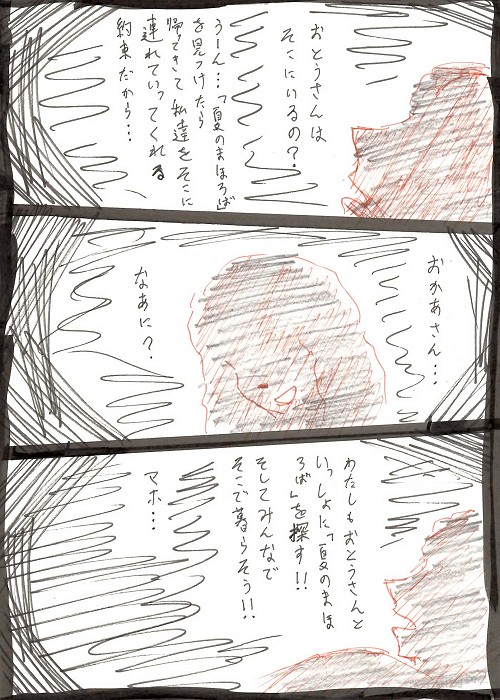 おとうさんは
そこにいるの？
うーん…「夏のまほろば」
を見つけたら
帰てきて私達をそこに
連れていってくれる
約束だから…
おかあさん…
なあに？
わたしもおとうさんと
いっしょに「夏のまほ
ろば」を探す!!
そしてみんなで
そこで暮らそう!!
マホ…